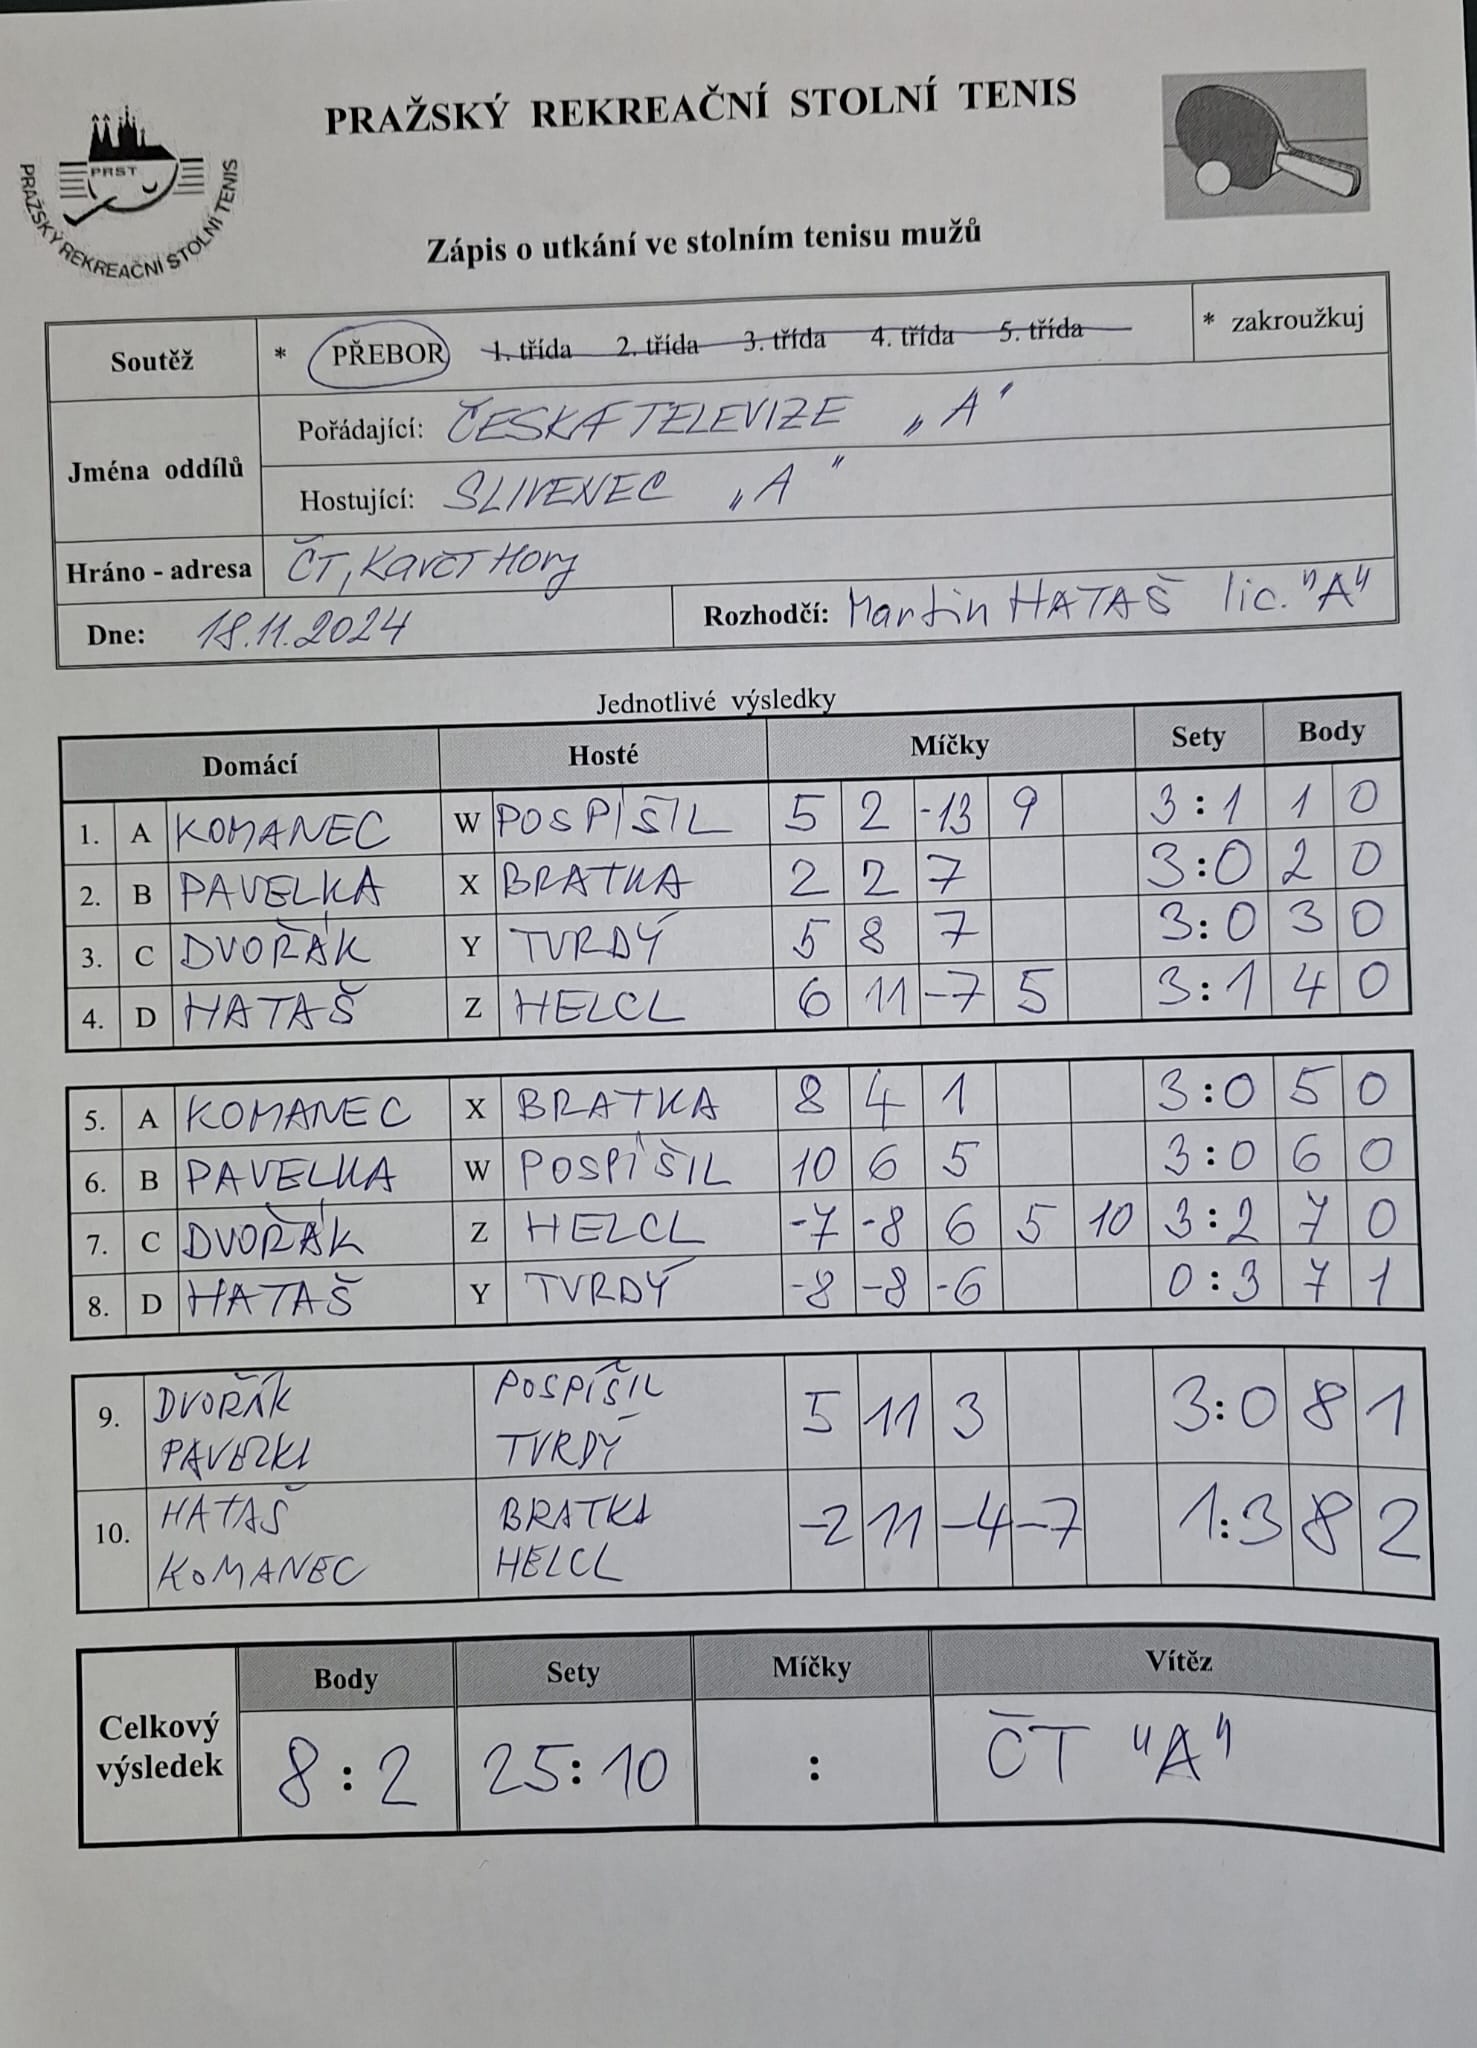 PRAŽSKÝ REKREAČNÍ STOLNÍ TENIS
PRST
PRAŽSKÝ REKREAČNÍ STOLNÍ TENIS
Zápis o utkání ve stolním tenisu mužů
Soutěž * PŘEBOR 1. třída 2. třída 3. třída 4. třída 5. třída * zakroužkuj
Jména oddílů
Pořádající: ČESKÁ TELEVIZE „A"
Hostující: SLIVENEC „A"
Hráno - adresa ČT, Kavčí Hory
Dne: 18.11.2024 Rozhodčí: Martin HATAŠ lic. "A"
Jednotlivé výsledky
Domácí Hosté Míčky Sety Body
1. A KOMANEC W POSPÍŠIL 5 2 -13 9 3:1 1 0
2. B PAVELKA X BRATKA 2 2 7 3:0 2 0
3. C DVOŘÁK Y TVRDÝ 5 8 7 3:0 3 0
4. D HATAŠ Z HELCL 6 11 -7 5 3:1 4 0
5. A KOMANEC X BRATKA 8 4 1 3:0 5 0
6. B PAVELKA W POSPÍŠIL 10 6 5 3:0 6 0
7. C DVOŘÁK Z HELCL -7 -8 6 5 10 3:2 7 0
8. D HATAŠ Y TVRDÝ -8 -8 -6 0:3 7 1
9. DVOŘÁK POSPÍŠIL 5 11 3 3:0 8 1
PAVELKA TVRDÝ
10. HATAŠ BRATKA -2 11 -4 -7 1:3 8 2
KOMANEC HELCL
Body Sety Míčky Vítěz
Celkový výsledek 8:2 25:10 : ČT "A"